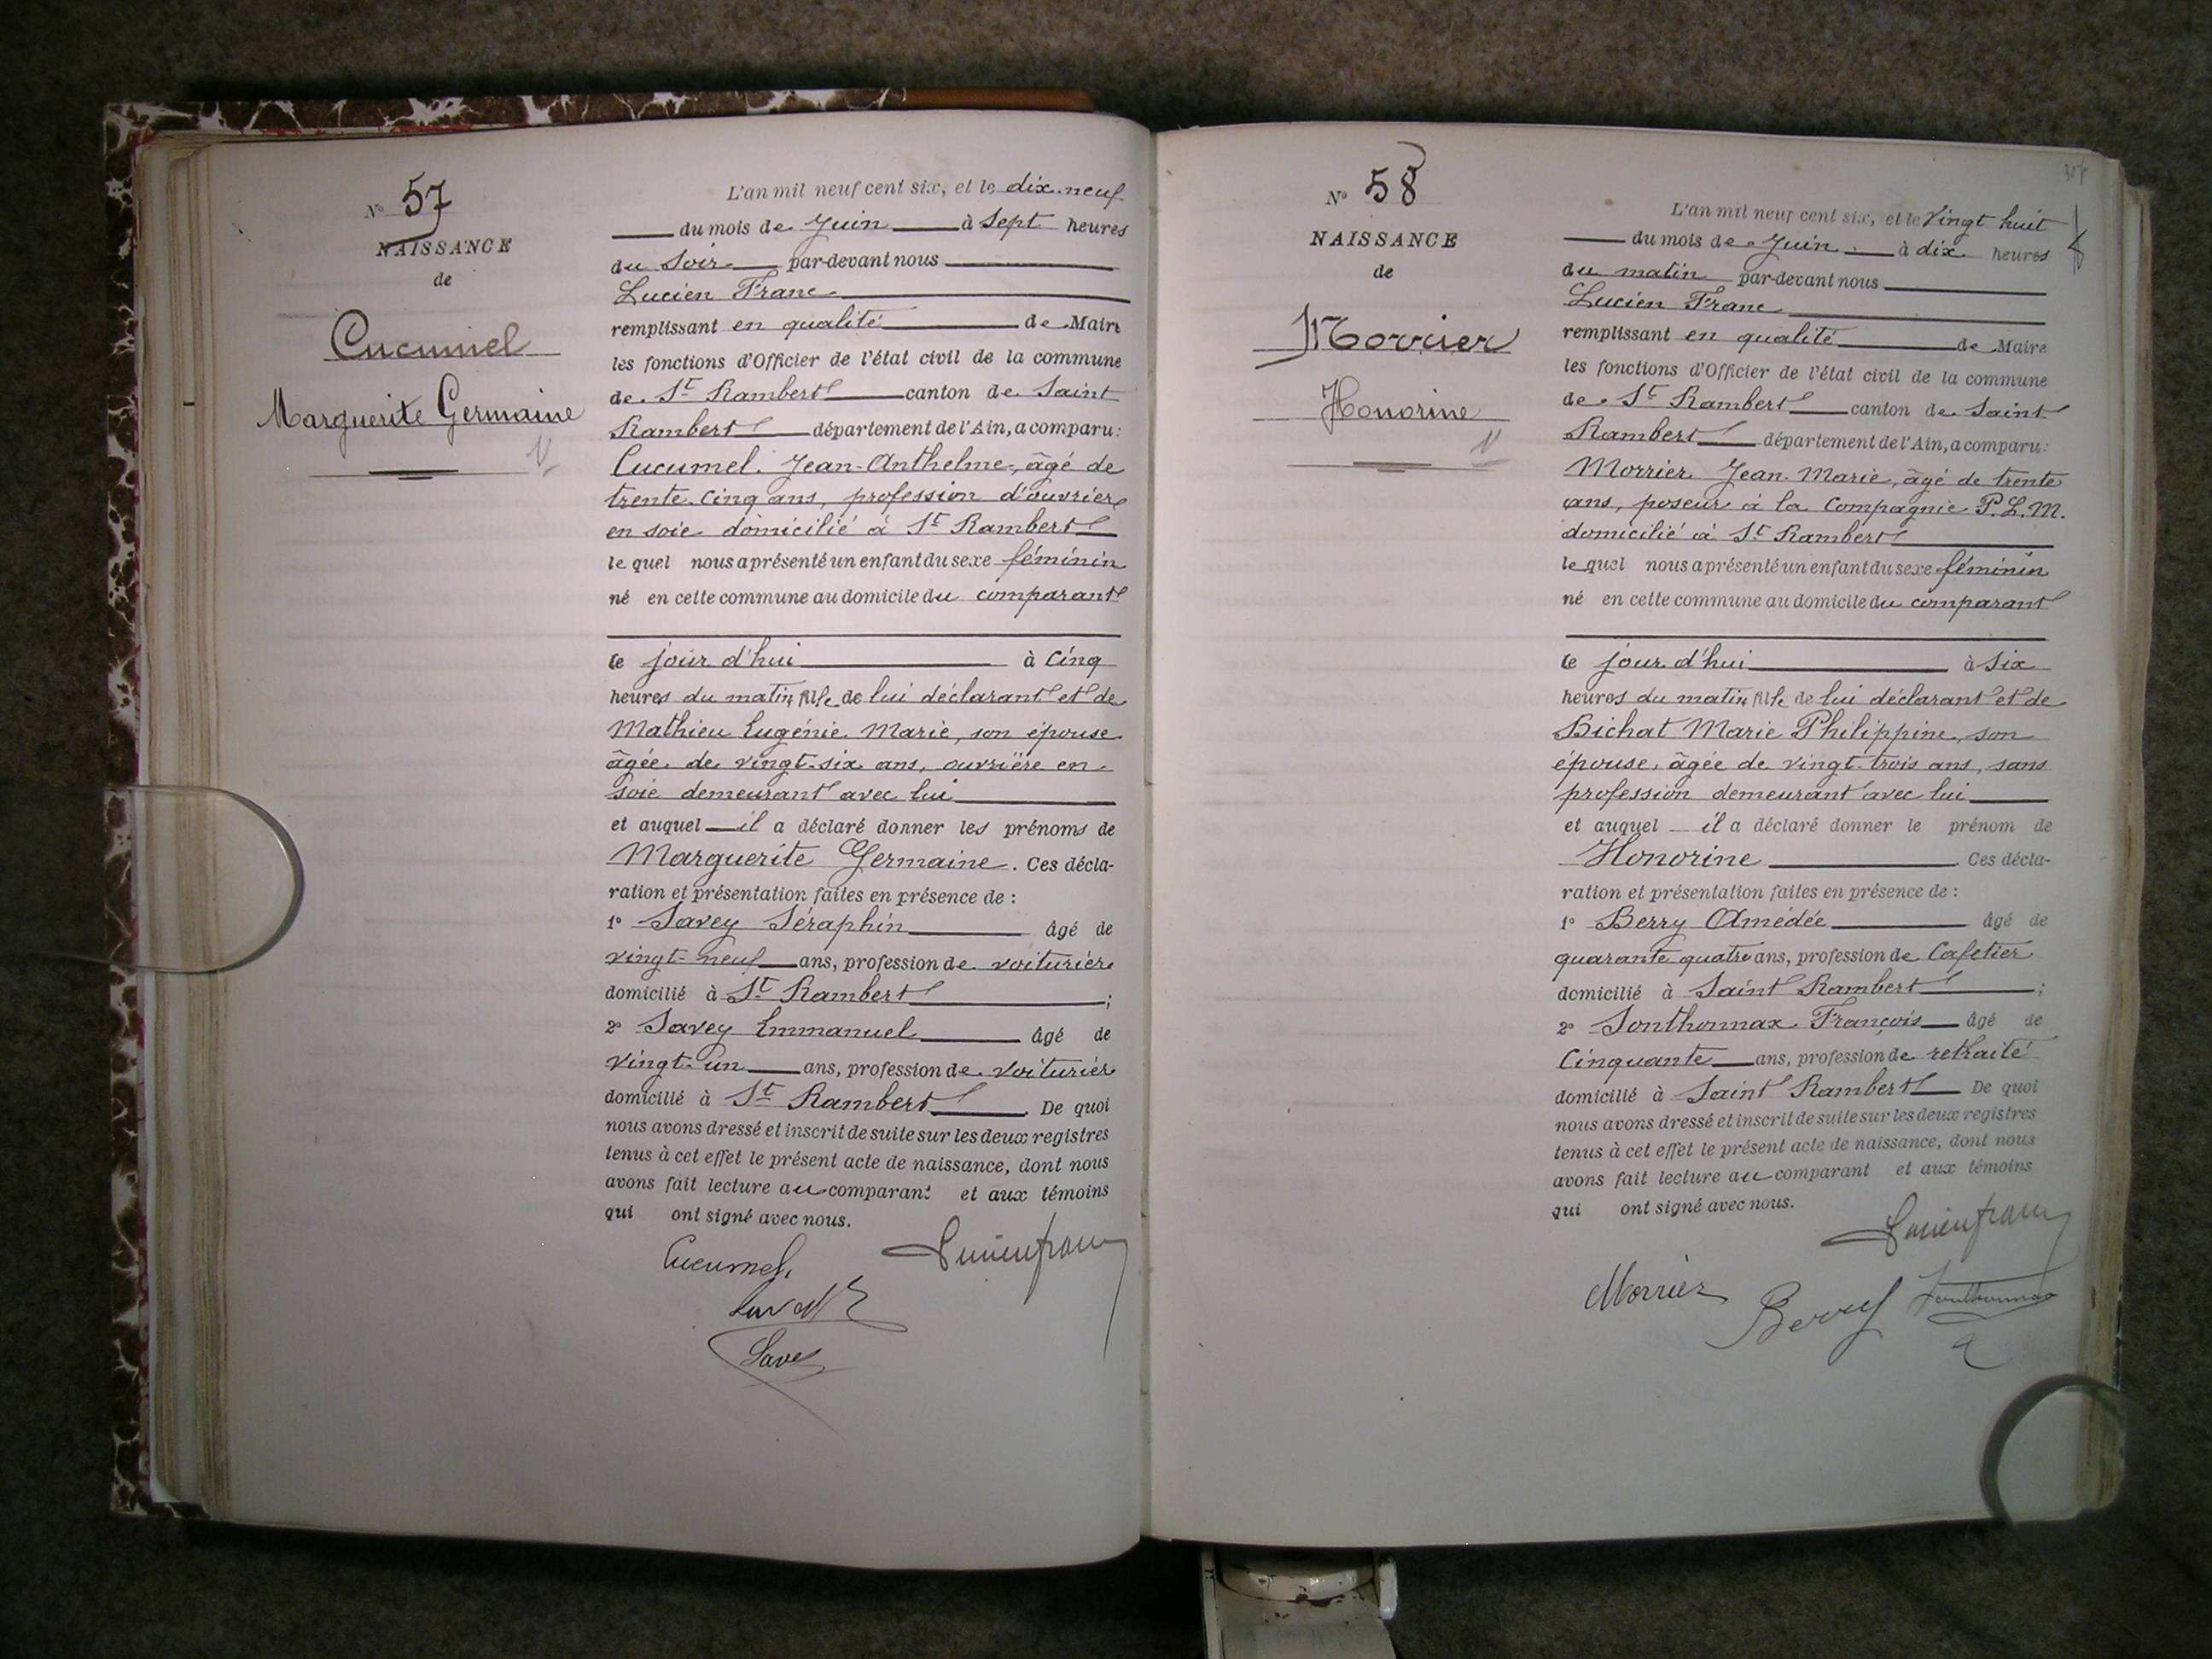 N° 57
NAISSANCE
de
Cucumel
Marguerite Germaine
L'an mil neuf cent six, et le dix-neuf
du mois de Juin à Sept heures
du Soir par-devant nous
Lucien Franc
remplissant en qualité de Maire
les fonctions d'Officier de l'état civil de la commune
de St Rambert canton de Saint
Rambert département de l'Ain, a comparu:
Cucumel Jean-Anthelme, âgé de
trente-cinq ans, profession d'ouvrier
en soie domicilié à St Rambert
le quel nous a présenté un enfant du sexe féminin
né en cette commune au domicile du comparant
le jour d'hui à cinq
heures du matin, fille de lui déclarant et de
Mathieu Eugénie Marie, son épouse
âgée de vingt-six ans, ouvrière en
soie demeurant avec lui
et auquel il a déclaré donner les prénoms de
Marguerite Germaine. Ces décla-
ration et présentation faites en présence de :
1° Savey Séraphin âgé de
vingt-neuf ans, profession de voiturier
domicilié à St Rambert ;
2° Savey Emmanuel âgé de
vingt-un ans, profession de voiturier
domicilié à St Rambert De quoi
nous avons dressé et inscrit de suite sur les deux registres
tenus à cet effet le présent acte de naissance, dont nous
avons fait lecture au comparant et aux témoins
qui ont signé avec nous.
Cucumel Lucien franc
Savey
N° 58
NAISSANCE
de
Morrier
Honorine
L'an mil neuf cent six, et le vingt huit
du mois de Juin à dix heures
du matin par-devant nous
Lucien Franc
remplissant en qualité de Maire
les fonctions d'Officier de l'état civil de la commune
de St Rambert canton de Saint
Rambert département de l'Ain, a comparu:
Morrier Jean-Marie, âgé de trente
ans, poseur à la Compagnie P.L.M.
domicilié à St Rambert
le quel nous a présenté un enfant du sexe féminin
né en cette commune au domicile du comparant
le jour d'hui à six
heures du matin, fille de lui déclarant et de
Bichat Marie Philippine, son
épouse, âgée de vingt-trois ans, sans
profession demeurant avec lui
et auquel il a déclaré donner le prénom de
Honorine Ces décla-
ration et présentation faites en présence de :
1° Berry Amédée âgé de
quarante quatre ans, profession de Cafetier
domicilié à Saint Rambert ;
2° Sonthonnax François âgé de
Cinquante ans, profession de retraité
domicilié à Saint Rambert De quoi
nous avons dressé et inscrit de suite sur les deux registres
tenus à cet effet le présent acte de naissance, dont nous
avons fait lecture au comparant et aux témoins
qui ont signé avec nous.
Lucien franc
Morrier Berry Sonthonnax